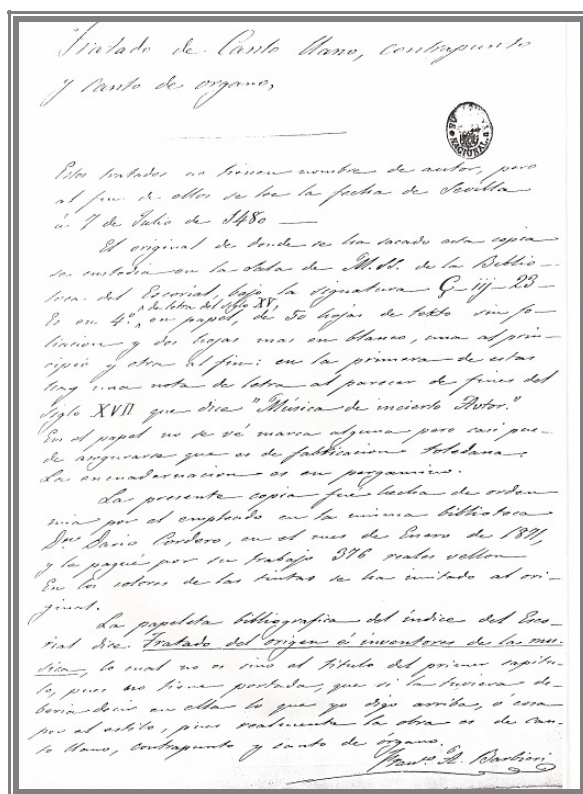 Tratado de Canto llano, contrapunto
y canto de organo,
NACIONAL
Estos tratados no tienen nombre de autor, pero
al fin de ellos se lee la fecha de Sevilla
á 7 de Julio de 1480 —
El original de donde se ha sacado esta copia
se custodia en la Sala de M.SS. de la Biblio-
teca del Escorial, bajo la signatura Ç-iij-23-
Es en 4º de letra del siglo XV, en papel, de 50 hojas de texto sin fo-
liacion y dos hojas mas en blanco, una al prin-
cipio y otra al fin: en la primera de estas
hay una nota de letra al parecer de fines del
siglo XVII que dice "Música de incierto Autor."
En el papel no se vé marca alguna pero casi pue-
de asegurarse que es de fabricacion toledana.
La encuadernacion es en pergamino.
La presente copia fué hecha de orden
mia por el empleado en la misma biblioteca
Dn. Dario Cordero, en el mes de Enero de 1871,
y le pagué por su trabajo 376 reales vellon
En los colores de las tintas se ha imitado al ori-
ginal.
La papeleta bibliografica del índice del Esco-
rial dice Tratado del origen é inventores de la mu-
sica, lo cual no es sino el título del primer capítu-
lo, pues no tiene portada, que si la tuviera de-
beria decir en ella lo que yo digo arriba, ó cosa
por el estilo, pues realmente la obra es de can-
to llano, contrapunto y canto de órgano.
Franco. A. Barbieri